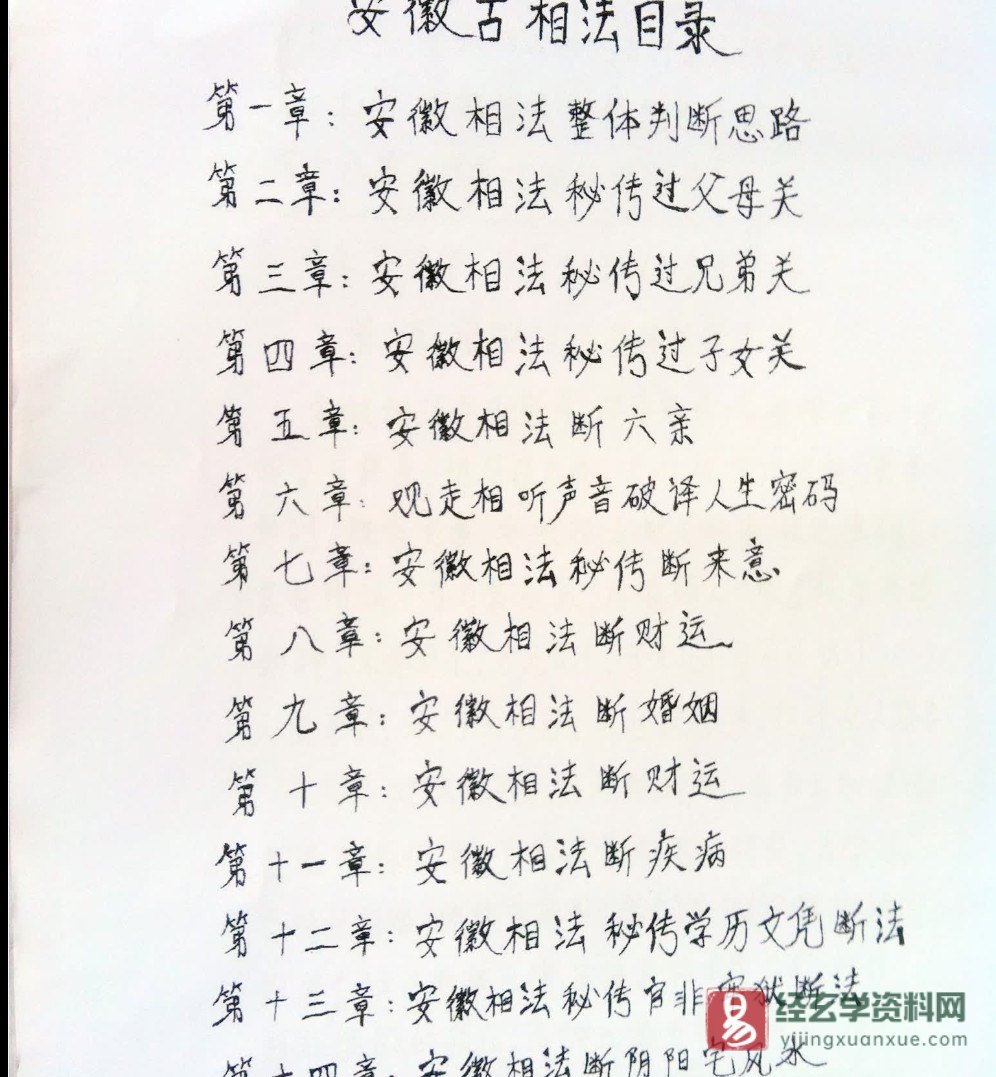 安徽古相法目录
第一章：安徽相法整体判断思路
第二章：安徽相法秘传过父母关
第三章：安徽相法秘传过兄弟关
第四章：安徽相法秘传过子女关
第五章：安徽相法断六亲
第六章：观走相听声音破译人生密码
第七章：安徽相法秘传断来意
第八章：安徽相法断财运
第九章：安徽相法断婚姻
第十章：安徽相法断财运
第十一章：安徽相法断疾病
第十二章：安徽相法秘传学历文凭断法
第十三章：安徽相法秘传官非牢狱断法
第十四章：安徽相法断阴阳宅风水
易 经玄学资料网
yijingxuanxue.com